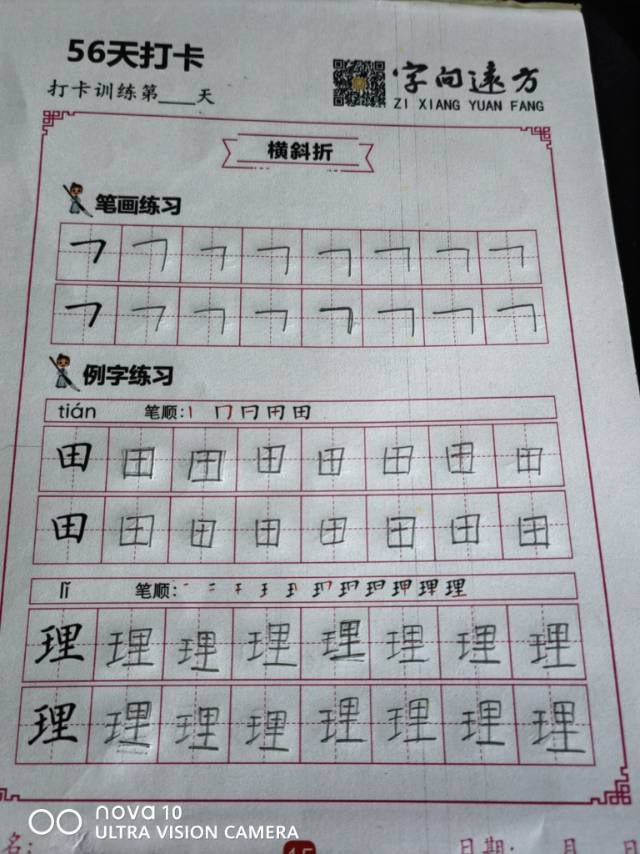 56天打卡
打卡训练第___天
字向远方
ZI XIANG YUAN FANG
横斜折
笔画练习
㇇ ㇇ ㇇ ㇇ ㇇ ㇇ ㇇ ㇇
㇇ ㇇ ㇇ ㇇ ㇇ ㇇ ㇇ ㇇
例字练习
tián 笔顺: 丨 冂 冃 田 田
田 田 田 田 田 田 田 田
田 田 田 田 田 田 田 田
lǐ 笔顺:
理 理 理 理 理 理 理 理
理 理 理 理 理 理 理 理
nova 10
ULTRA VISION CAMERA
名:
15
日期: 月 日